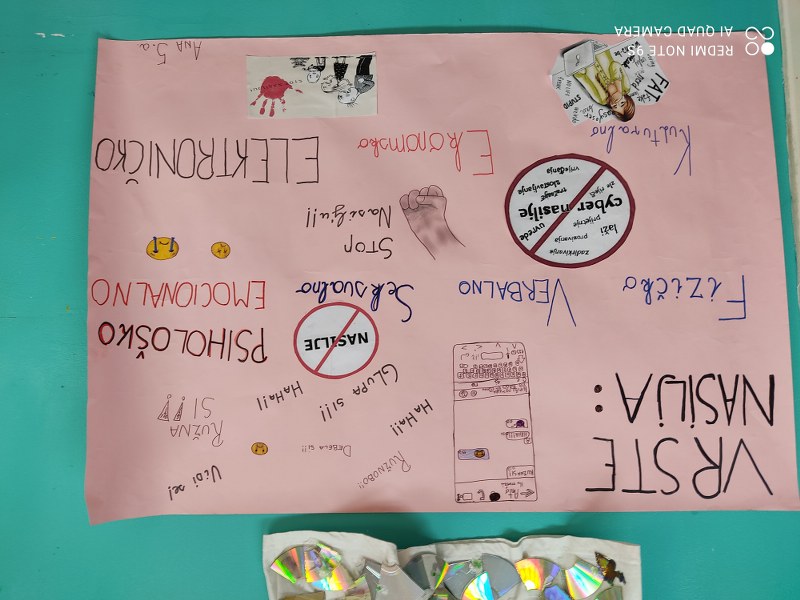 VRSTE
NASILJA:
Fizičko
VERBALNO
Seksualno
EMOCIONALNO
PSIHOLOŠKO
Kulturalno
Ekonomsko
ELEKTRONIČKO
STOP
Nasilju!!
NASILJE
cyber nasilje
Zadirkivanje
prozivanja
laži
prijetnje
uvrede
vrijeđanja
GLUPA SI!!
HAHA!!
HAHA!!
RUŽNA
SI!!
DEBELA SI!!
RUŽNOBO!!
Ubij se!
FAT
STUPID
ANA 5.a
REDMI NOTE 9S
AI QUAD CAMERA